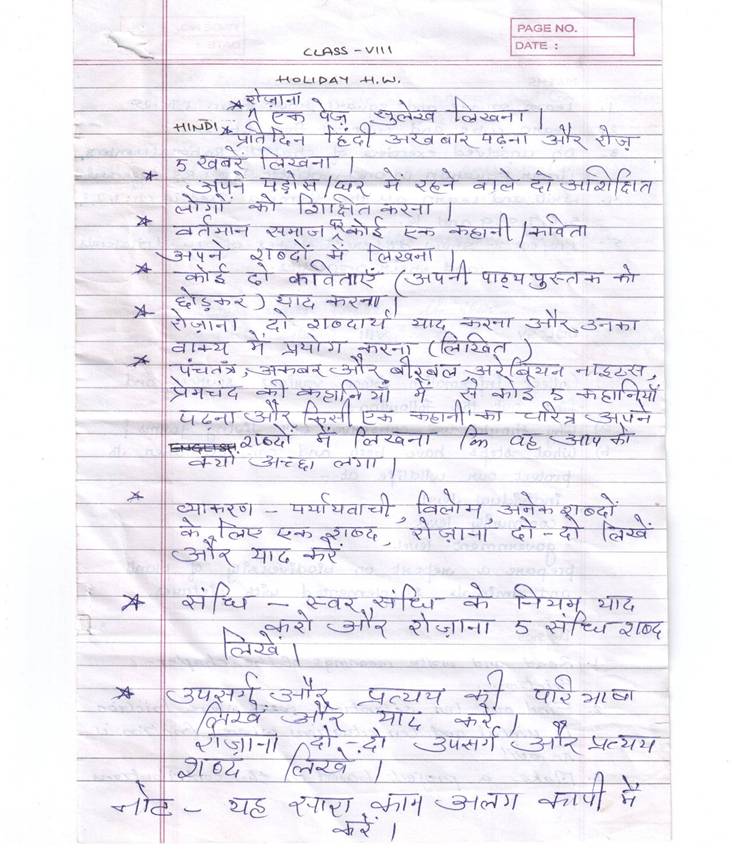 PAGE NO.
DATE :
CLASS - VIII
HOLIDAY H.W.
HINDI
* रोज़ाना एक पेज़ सुलेख लिखना।
* प्रतिदिन हिंदी अखबार पढ़ना और रोज़
5 खबरें लिखना।
* अपने पड़ोस/घर में रहने वाले दो अशिक्षित
लोगों को शिक्षित करना।
* वर्तमान समाज पर कोई एक कहानी/कविता
अपने शब्दों में लिखना।
* कोई दो कविताएँ (अपनी पाठ्यपुस्तक को
छोड़कर) याद करना।
* रोज़ाना दो शब्दार्थ याद करना और उनका
वाक्य में प्रयोग करना (लिखित)
* पंचतंत्र, अकबर और बीरबल, अरेबियन नाइट्स,
प्रेमचंद की कहानियाँ में से कोई 5 कहानियाँ
पढ़ना और किसी एक कहानी का चरित्र अपने
शब्दों में लिखना कि वह आप को
क्यों अच्छा लगा।
* व्याकरण - पर्यायवाची, विलोम, अनेक शब्दों
के लिए एक शब्द, रोज़ाना दो-दो लिखें
और याद करें
* संधि - स्वर संधि के नियम याद
करो और रोज़ाना 5 संधि शब्द
लिखें।
* उपसर्ग और प्रत्यय की परिभाषा
लिखें और याद करें।
रोज़ाना दो-दो उपसर्ग और प्रत्यय
शब्द लिखें।
नोट - यह सारा काम अलग कापी में
करें।